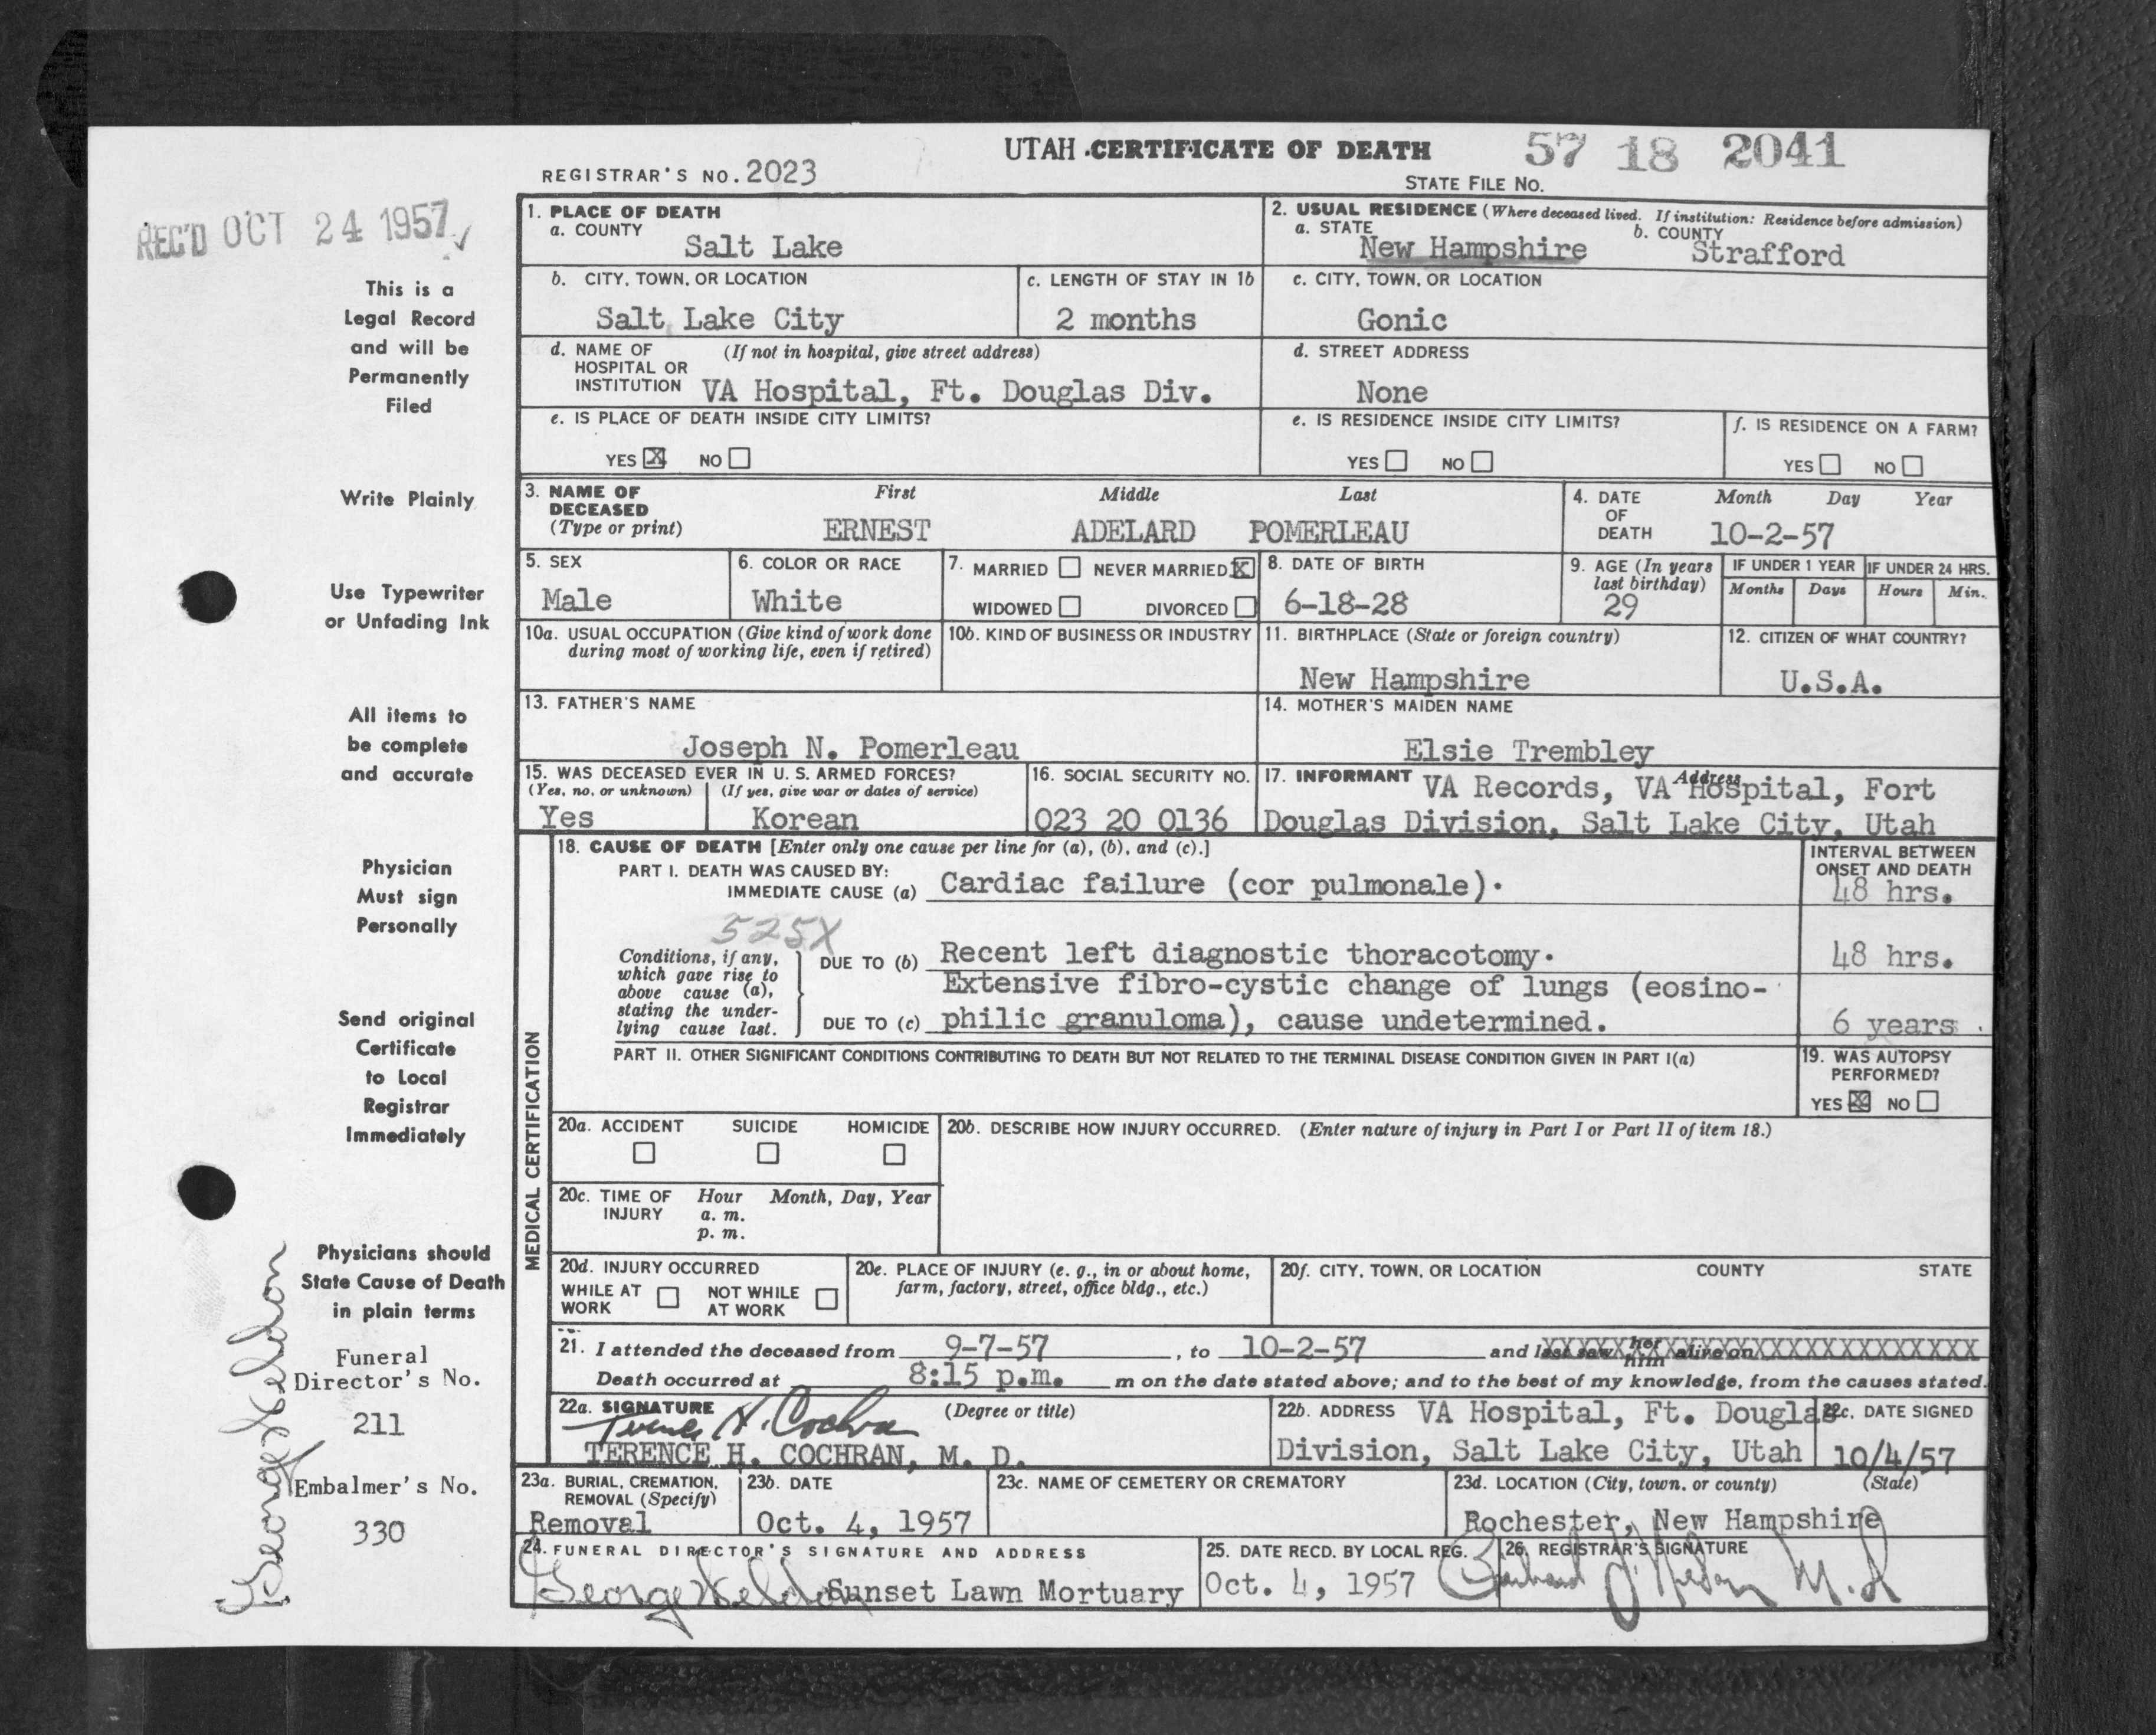 UTAH CERTIFICATE OF DEATH 57 18 2041
REGISTRAR'S NO. 2023
STATE FILE NO.
REC'D OCT 24 1957
This is a
Legal Record
and will be
Permanently
Filed
Write Plainly
Use Typewriter
or Unfading Ink
All items to
be complete
and accurate
Physician
Must sign
Personally
Send original
Certificate
to Local
Registrar
Immediately
Physicians should
State Cause of Death
in plain terms
Funeral
Director's No.
211
Embalmer's No.
330
1. PLACE OF DEATH
a. COUNTY
Salt Lake
2. USUAL RESIDENCE (Where deceased lived. If institution: Residence before admission)
a. STATE b. COUNTY
New Hampshire Strafford
b. CITY, TOWN, OR LOCATION
Salt Lake City
c. LENGTH OF STAY IN 1b
2 months
c. CITY, TOWN, OR LOCATION
Gonic
d. NAME OF (If not in hospital, give street address)
HOSPITAL OR
INSTITUTION VA Hospital, Ft. Douglas Div.
d. STREET ADDRESS
None
e. IS PLACE OF DEATH INSIDE CITY LIMITS?
YES X NO
e. IS RESIDENCE INSIDE CITY LIMITS?
YES NO
f. IS RESIDENCE ON A FARM?
YES NO
3. NAME OF DECEASED First Middle Last
(Type or print) ERNEST ADELARD POMERLEAU
4. DATE OF DEATH Month Day Year
10-2-57
5. SEX
Male
6. COLOR OR RACE
White
7. MARRIED NEVER MARRIED X
WIDOWED DIVORCED
8. DATE OF BIRTH
6-18-28
9. AGE (In years
last birthday)
29
IF UNDER 1 YEAR IF UNDER 24 HRS.
Months Days Hours Min.
10a. USUAL OCCUPATION (Give kind of work done
during most of working life, even if retired)
10b. KIND OF BUSINESS OR INDUSTRY
11. BIRTHPLACE (State or foreign country)
New Hampshire
12. CITIZEN OF WHAT COUNTRY?
U.S.A.
13. FATHER'S NAME
Joseph N. Pomerleau
14. MOTHER'S MAIDEN NAME
Elsie Trembley
15. WAS DECEASED EVER IN U. S. ARMED FORCES?
(Yes, no, or unknown) (If yes, give war or dates of service)
Yes Korean
16. SOCIAL SECURITY NO.
023 20 0136
17. INFORMANT Address
VA Records, VA Hospital, Fort
Douglas Division, Salt Lake City, Utah
MEDICAL CERTIFICATION
18. CAUSE OF DEATH [Enter only one cause per line for (a), (b), and (c).]
INTERVAL BETWEEN
ONSET AND DEATH
PART I. DEATH WAS CAUSED BY:
IMMEDIATE CAUSE (a) Cardiac failure (cor pulmonale). 48 hrs.
525X
Conditions, if any,
which gave rise to
above cause (a),
stating the under-
lying cause last.
DUE TO (b) Recent left diagnostic thoracotomy. 48 hrs.
Extensive fibro-cystic change of lungs (eosino-
DUE TO (c) philic granuloma), cause undetermined. 6 years.
PART II. OTHER SIGNIFICANT CONDITIONS CONTRIBUTING TO DEATH BUT NOT RELATED TO THE TERMINAL DISEASE CONDITION GIVEN IN PART I(a)
19. WAS AUTOPSY
PERFORMED?
YES X NO
20a. ACCIDENT SUICIDE HOMICIDE
20b. DESCRIBE HOW INJURY OCCURRED. (Enter nature of injury in Part I or Part II of item 18.)
20c. TIME OF INJURY Hour Month, Day, Year
a. m.
p. m.
20d. INJURY OCCURRED
WHILE AT WORK NOT WHILE AT WORK
20e. PLACE OF INJURY (e. g., in or about home,
farm, factory, street, office bldg., etc.)
20f. CITY, TOWN, OR LOCATION COUNTY STATE
21. I attended the deceased from 9-7-57, to 10-2-57 and last saw her him alive on XXXXXXXXXXXXXXXXX
Death occurred at 8:15 p.m. m on the date stated above; and to the best of my knowledge, from the causes stated.
22a. SIGNATURE (Degree or title)
Terence H. Cochran
TERENCE H. COCHRAN, M. D.
22b. ADDRESS VA Hospital, Ft. Douglas
Division, Salt Lake City, Utah
22c. DATE SIGNED
10/4/57
23a. BURIAL, CREMATION,
REMOVAL (Specify)
Removal
23b. DATE
Oct. 4, 1957
23c. NAME OF CEMETERY OR CREMATORY
23d. LOCATION (City, town, or county) (State)
Rochester, New Hampshire
24. FUNERAL DIRECTOR'S SIGNATURE AND ADDRESS
Sunset Lawn Mortuary
25. DATE RECD. BY LOCAL REG.
Oct. 4, 1957
26. REGISTRAR'S SIGNATURE